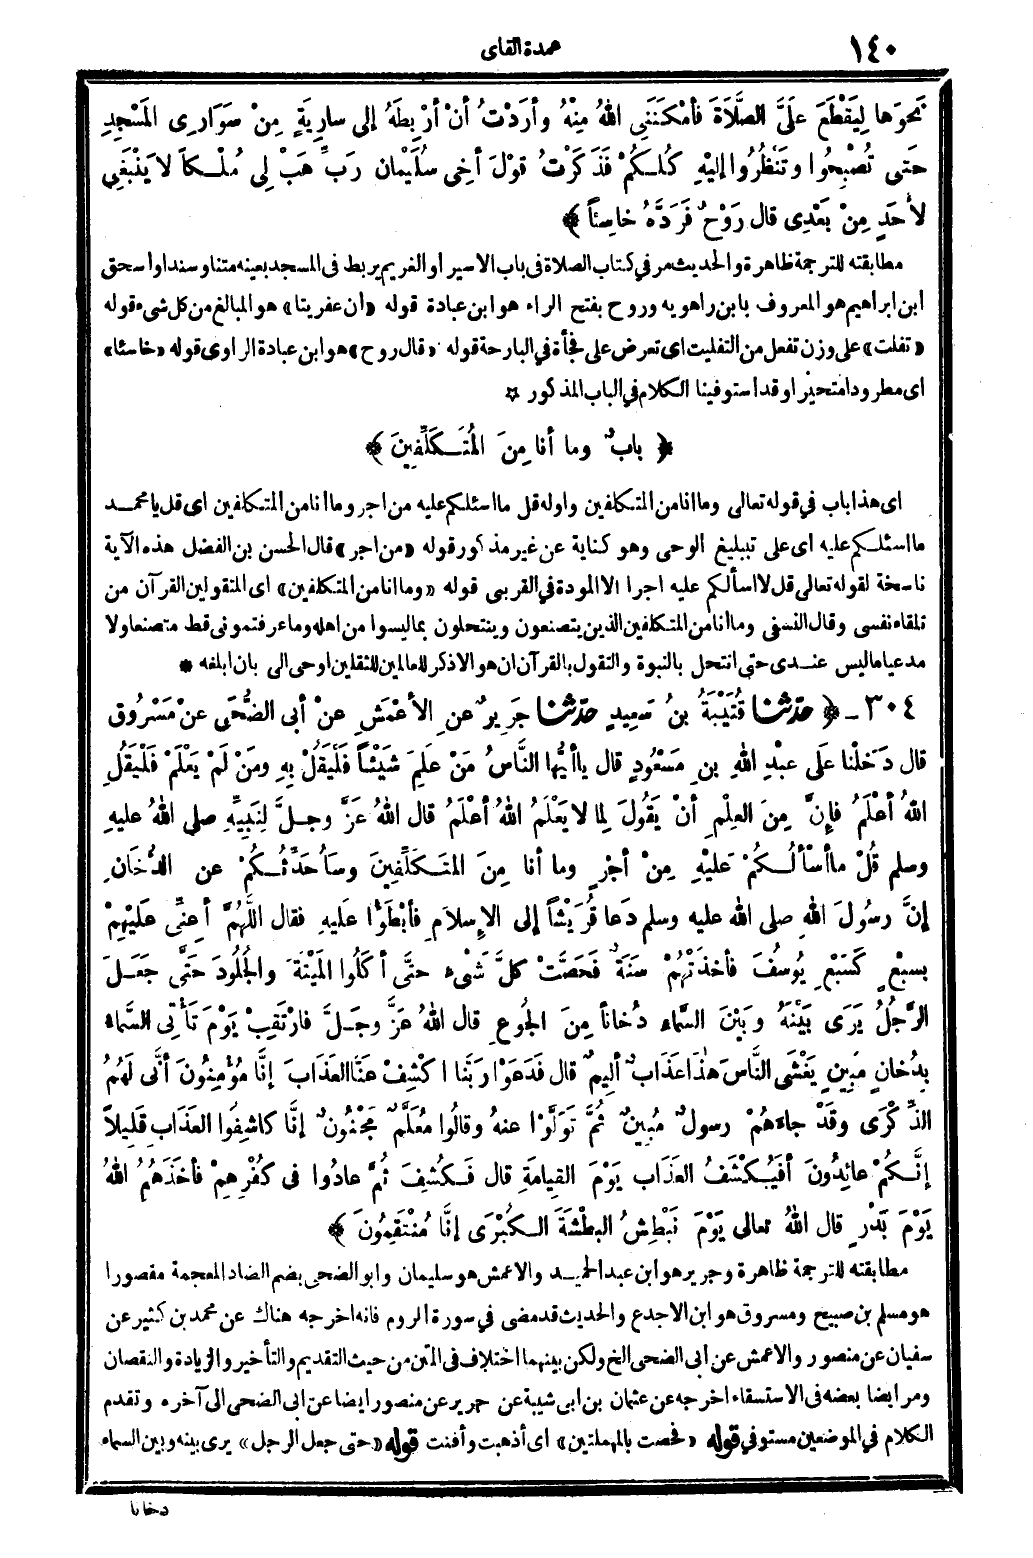 ١٤٠
عمدة القاى
نَحْوَها لِيَقْطَعَ عَلَىَّ الصَّلَاةَ فَأَمْكَنَنِى اللهُ مِنْهُ وأرَدْتُ أنْ أرْبِطَهُ إلى سارِيَةٍ مِنْ سَوَارِى المَسْجِدِ
حَتى تُصْبِحُوا وتَنْظُرُوا إليْهِ كُلُّكُمْ فَذَكَرْتُ قوْلَ أخِى سُلَيْمان رَبِّ هَبْ لِى مُلْكاً لا يَنْبَغِي
لأحَدٍ مِنْ بَعْدِى قال رَوْحٌ فَرَدَّهُ خاسِئاً ﴾
مطابقته للترجمة ظاهرة والحديث مر في كتاب الصلاة فى باب الاسير او الغريم يربط فى المسجد بعينه متنا وسندا واسحق
ابن ابراهيم هو المعروف بابن راهويه وروح بفتح الراء هو ابن عبادة قوله «ان عفريتا» هو المبالغ من كل شىء قوله
«تفلت» على وزن تفعل من التفليت اى تعرض على فجأة في البارحة قوله «قال روح» هو ابن عبادة الراوى قوله «خاسئا»
اى مطرودا متحيرا وقد استوفينا الكلام في الباب المذكور ٭
﴿ بابٌ وما أنا مِنَ المُتَكَلِّفِينَ ﴾
اى هذا باب في قوله تعالى وما انا من المتكلفين واوله قل ما اسئلكم عليه من اجر وما انا من المتكلفين اى قل يا محمد
ما اسئلكم عليه اى على تبليغ الوحى وهو كناية عن غير مذكور قوله «من اجر» قال الحسن بن الفضل هذه الآية
ناسخة لقوله تعالى قل لا اسألكم عليه اجرا الا المودة في القربى قوله «وما انا من المتكلفين» اى المتقولين القرآن من
تلقاء نفسى وقال النسفى وما انا من المتكلفين الذين يتصنعون وينتحلون بما ليسوا من اهله وما عرفتمونى قط متصنعا ولا
مدعيا ما ليس عندى حتى انتحل بالنبوة والتقول بالقرآن ان هو الا ذكر للعالمين للثقلين اوحى الى بان ابلغه ٭
٣٠٤ - ﴿ حدّثنا قُتَيْبَةُ بنُ سَعِيدٍ حدّثنا جَرِيرٌ عنِ الأعْمَشِ عنْ أبى الضُّحَى عنْ مَسْرُوقٍ
قال دَخَلْنا علَى عبْدِ اللهِ بنِ مَسْعُودٍ قال ياأيُّها النَّاسُ مَنْ عَلِمَ شَيْئاً فَلْيَقُلْ بِهِ ومَنْ لَمْ يَعْلَمْ فَلْيَقُلِ
اللهُ أعْلَمُ فإنَّ مِنَ العِلْمِ أنْ يَقُولَ لِما لا يَعْلَمُ اللهُ أعْلَمُ قال اللهُ عَزَّ وجلَّ لِنَبِيِّهِ صلى اللهُ عليهِ
وسلم قُلْ ماأسْألُكُمْ عَلَيْهِ مِنْ أجْرٍ وما أنا مِنَ المتَكَلِّفِينَ وسَأُحَدِّثُكُمْ عن الدُّخَانِ
إنَّ رسُولَ اللهِ صلى الله عليه وسلم دَعا قُرَيْشاً إلى الإسِلَامِ فأبْطَؤُا عَلَيهِ فقال اللَّهُمَّ أعِنِّى علَيْهِمْ
بسبْعٍ كَسَبْعِ يُوسُفَ فأخذَتْهُمْ سَنَةٌ فَحَصَّتْ كلَّ شَىْءٍ حتَّى أكَلُوا المَيْتَةَ والجُلُودَ حَتَّى جَعَلَ
الرَّجُلُ يَرَى بَيْنَهُ وبَيْنَ السَّماءِ دُخاناً مِنَ الجُوعِ قال اللهُ عَزَّ وجَلَّ فارْتَقِبْ يَوْمَ تَأْتِى السَّماءُ
بِدُخانٍ مُبِينٍ يَغْشَى النَّاسَ هٰذَا عَذَابٌ ألِيمٌ قال فَدَعَوْا رَبَّنا اكْشِفْ عنَّا العَذَابَ إنَّا مُؤْمِنُونَ أنَّى لَهُمُ
الذِّكْرَى وقَدْ جاءَهُمْ رسولٌ مُبِينٌ ثُمَّ تَوَلَّوْا عنهُ وقالُوا مُعَلَّمٌ مَجْنُونٌ إنَّا كاشِفُوا العَذَابِ قَلِيلاً
إنَّكُمْ عائِدُونَ أفَيُكْشَفُ العَذَاب يَوْمَ القِيامَةِ قال فَكُشِفَ ثُمَّ عادُوا فى كُفْرِهِمْ فأخَذَهُمُ اللهُ
يَوْمَ بَدْرٍ قال اللهُ تعالى يَوْمَ نَبْطِشُ البطْشَةَ الكُبْرَى إنَّا مُنْتَقِمُونَ ﴾
مطابقته للترجمة ظاهرة وجرير هو ابن عبد الحميد والاعمش هو سليمان وابو الضحى بضم الضاد المعجمة مقصورا
هو مسلم بن صبيح ومسروق هو ابن الاجدع والحديث قد مضى في سورة الروم فانه اخرجه هناك عن محمد بن كثير عن
سفيان عن منصور والاعمش عن ابى الضحى الخ ولكن بينهما اختلاف فى المتن من حيث التقديم والتأخير والزيادة والنقصان
ومر ايضا بعضه فى الاستسقاء اخرجه عن عثمان بن ابى شيبة عن جرير عن منصور ايضا عن ابى الضحى الى آخره وتقدم
الكلام في الموضعين مستوفي قوله «فحصت بالمهملتين» اى أذهبت وأفنت قوله «حتى جعل الرجل» يرى بينه وبين السماء
دخانا